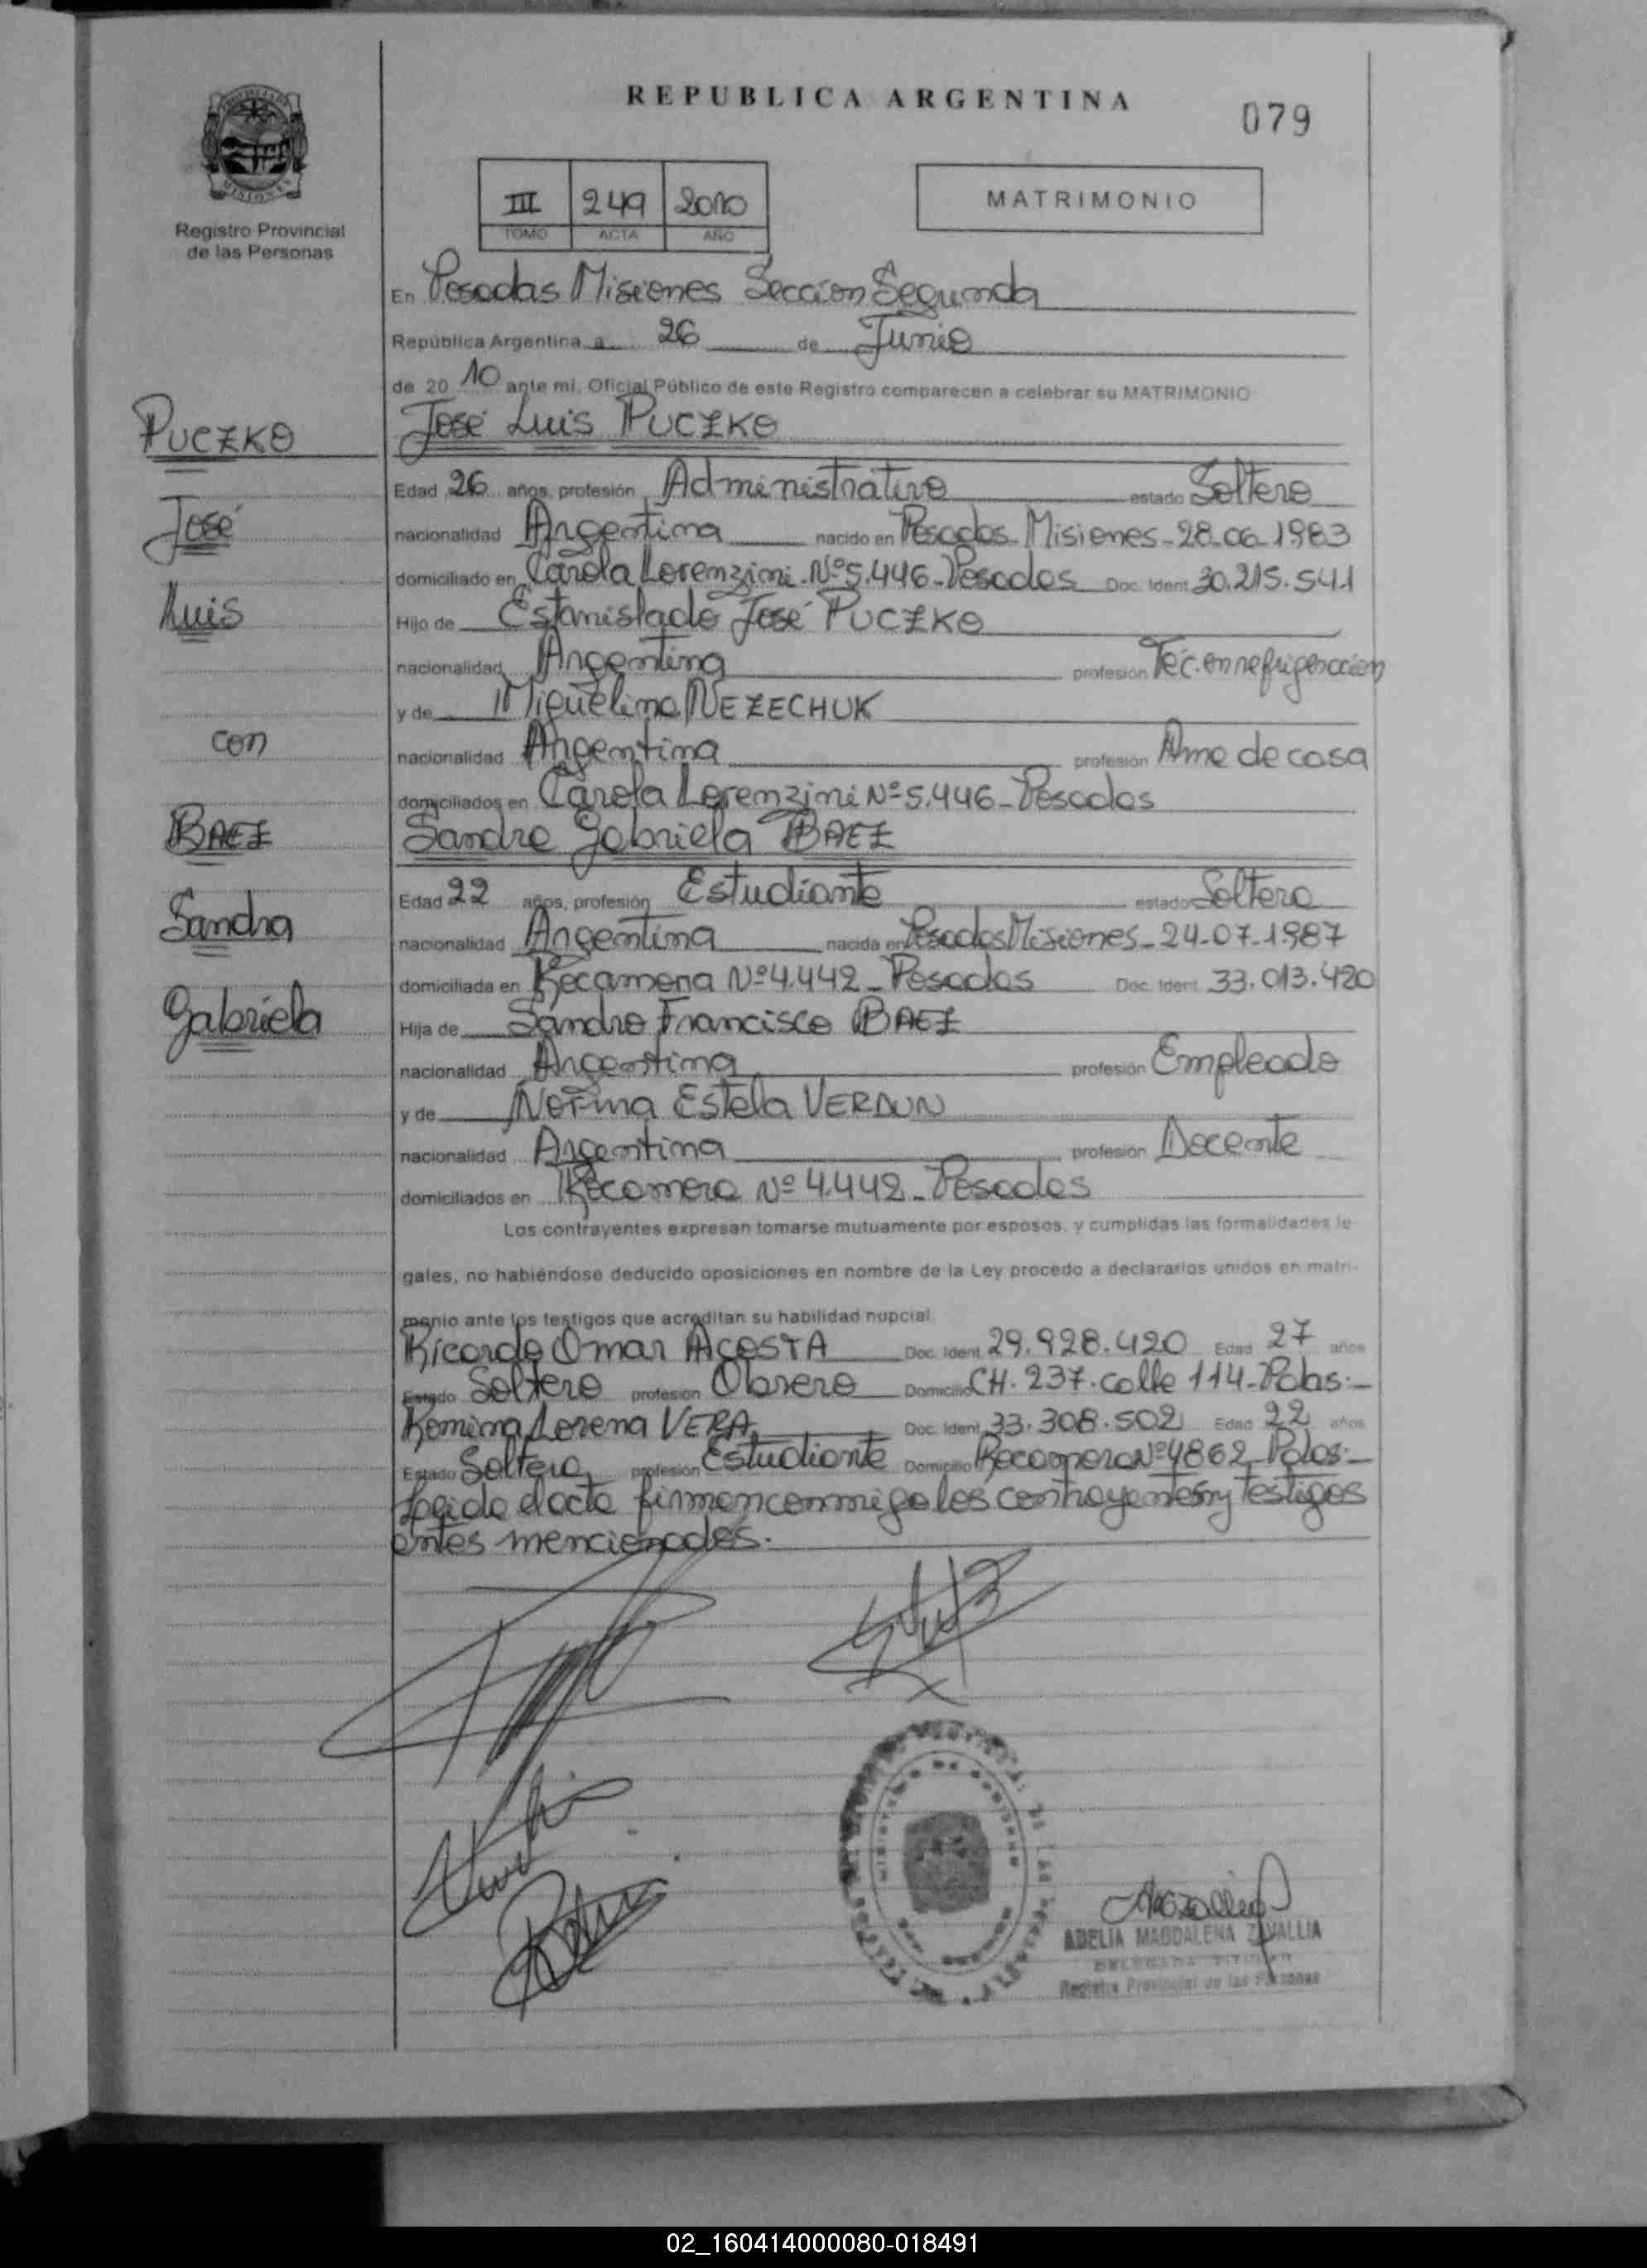 REPUBLICA ARGENTINA
079
III 249 2010
TOMO ACTA AÑO
MATRIMONIO
PROVINCIA DE MISIONES
Registro Provincial
de las Personas
En Posadas Misiones Sección Segunda
República Argentina a 26 de Junio
de 20 10 ante mi, Oficial Público de este Registro comparecen a celebrar su MATRIMONIO
PUCZKO
José Luis PUCZKO
Edad 26 años, profesión Administrativo estado Soltero
José
nacionalidad Argentina nacido en Posadas Misiones - 28-06-1983
domiciliado en Carola Lorenzini Nº 5.446 - Posadas Doc. Ident 30.215.541
Luis
Hijo de Estanislado José PUCZKO
nacionalidad Argentina profesión Téc. en refrigeración
y de Miquelina NEZECHUK
con
nacionalidad Argentina profesión Ama de casa
domiciliados en Carola Lorenzini Nº 5.446 - Posadas
BAEZ
Sandra Gabriela BAEZ
Edad 22 años, profesión Estudiante estado Soltera
Sandra
nacionalidad Argentina nacida en Posadas Misiones - 24-07-1987
domiciliada en Rocamora Nº 4.442 - Posadas Doc. Ident 33.013.420
Gabriela
Hija de Sandro Francisco BAEZ
nacionalidad Argentina profesión Empleado
y de Norma Estela VERDUN
nacionalidad Argentina profesión Docente
domiciliados en Rocamora Nº 4.442 - Posadas
Los contrayentes expresan tomarse mutuamente por esposos, y cumplidas las formalidades le-
gales, no habiéndose deducido oposiciones en nombre de la Ley procedo a declararlos unidos en matri-
monio ante los testigos que acreditan su habilidad nupcial.
Ricardo Omar ACOSTA Doc. Ident 29.928.420 Edad 27 años
Estado Soltero profesión Obrero Domicilio CH. 237. calle 114 - Pdas.-
Romina Lorena VERA Doc. Ident 33.308.502 Edad 22 años
Estado Soltera profesión Estudiante Domicilio Rocamora Nº 4862 Pdas.-
Leida el acta firman conmigo los contrayentes y testigos
antes mencionados.
ADELIA MAGDALENA ZAVALLIA
DELEGADA TITULAR
Registro Provincial de las Personas
02_160414000080-018491